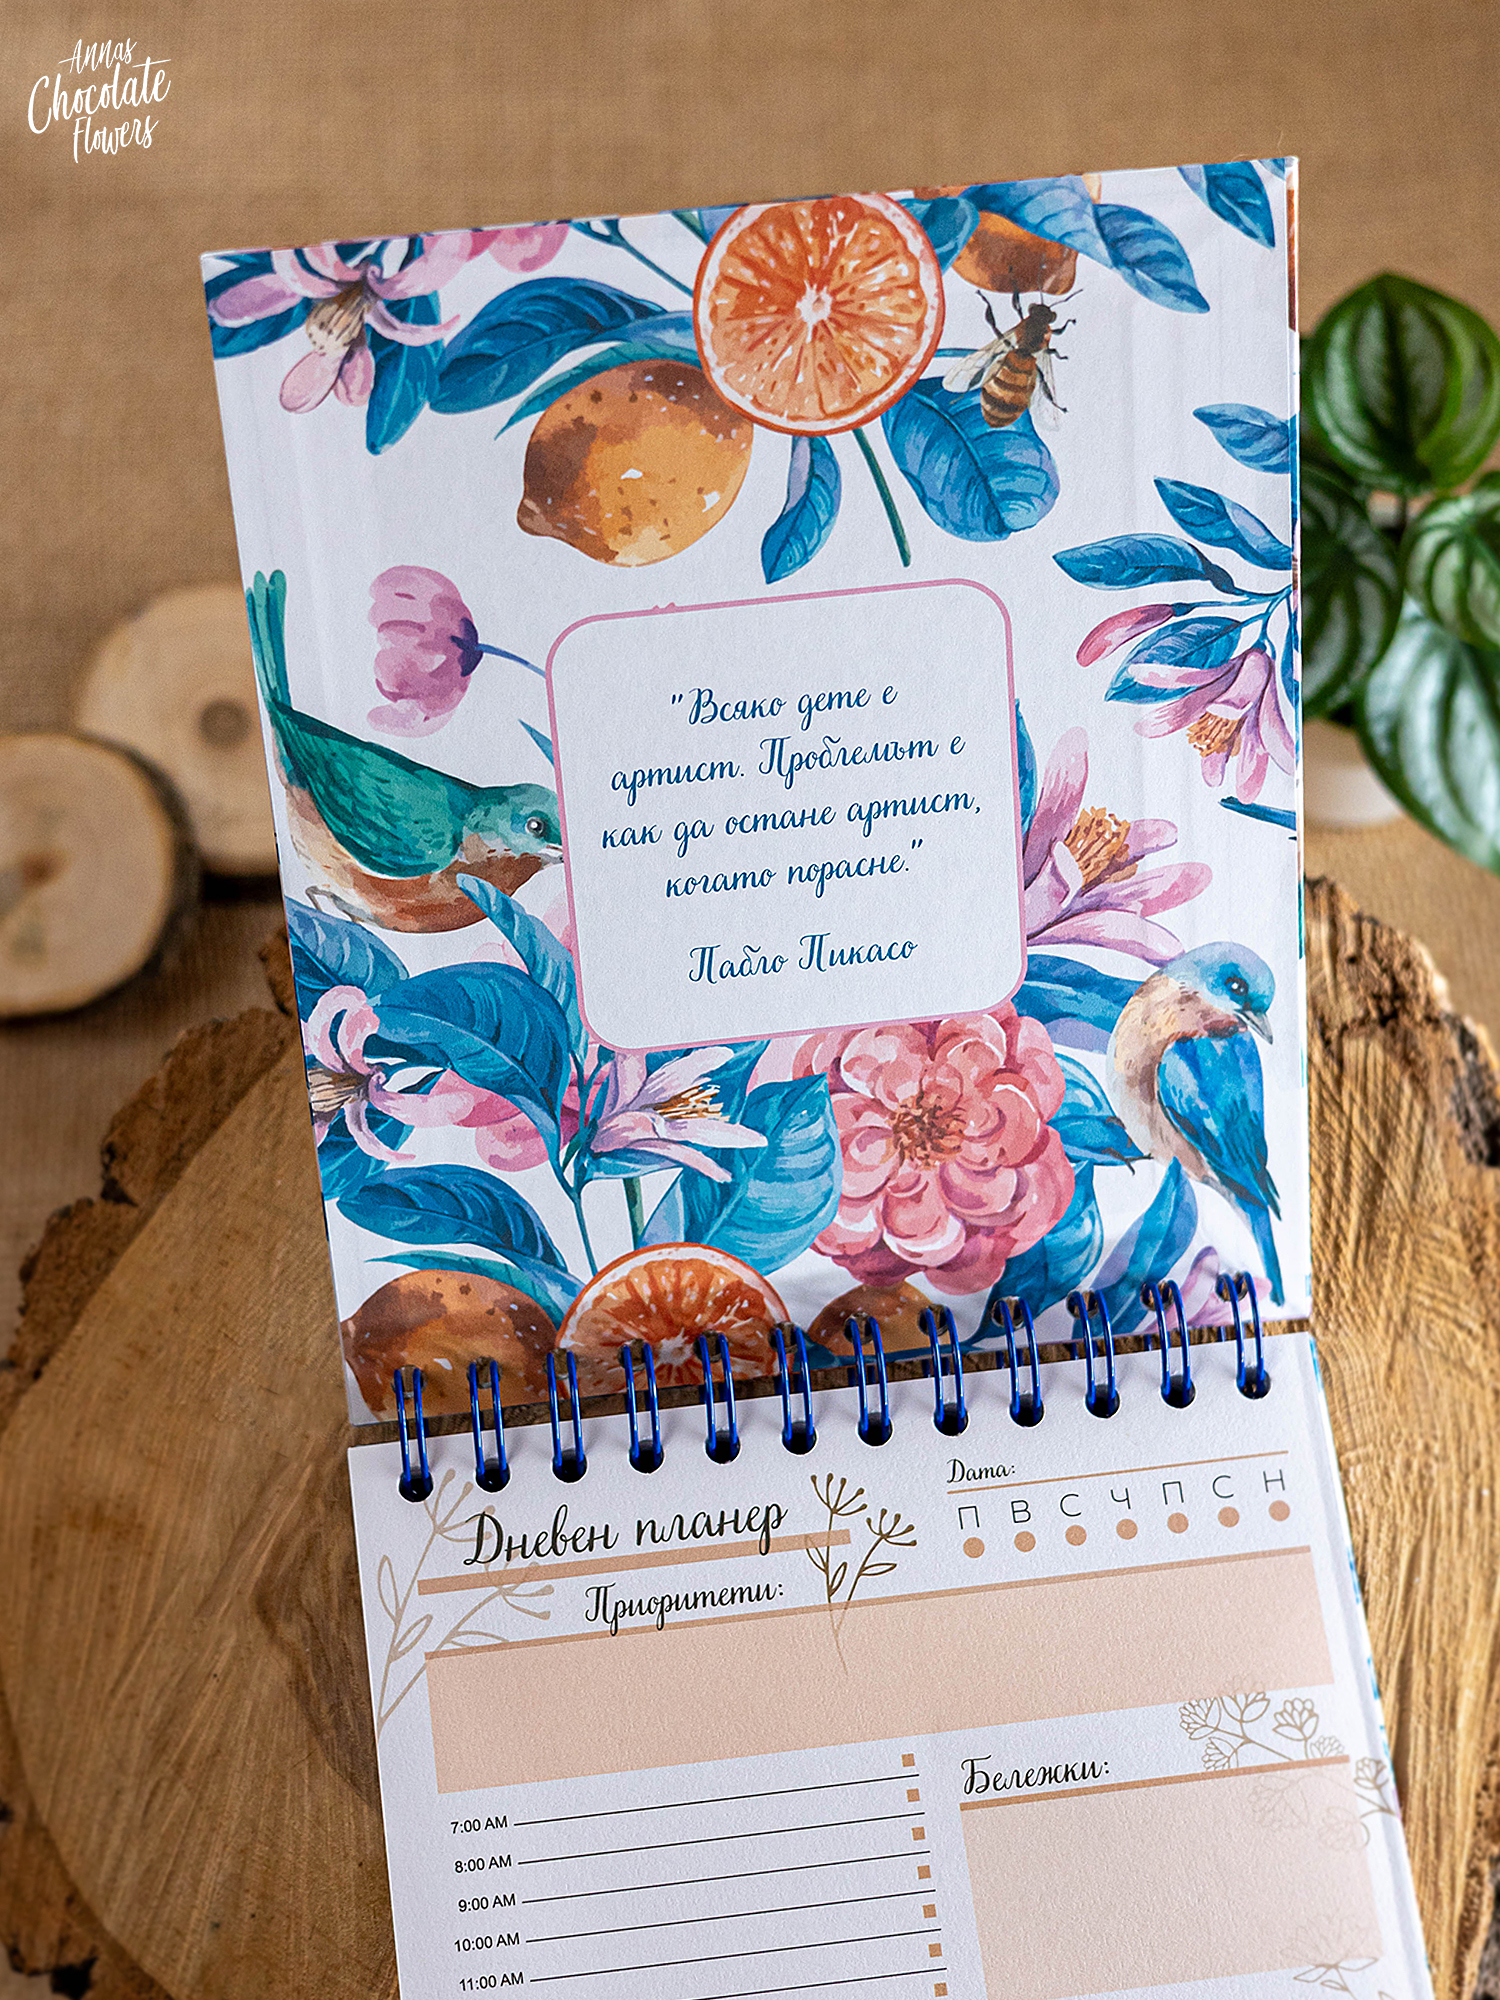 Annas
Chocolate
Flowers
"Всяко дете е
артист. Проблемът е
как да остане артист,
когато порасне."
Пабло Пикасо
Дневен планер
Дата:
П В С Ч П С Н
Приоритети:
Бележки:
7:00 AM
8:00 AM
9:00 AM
10:00 AM
11:00 AM